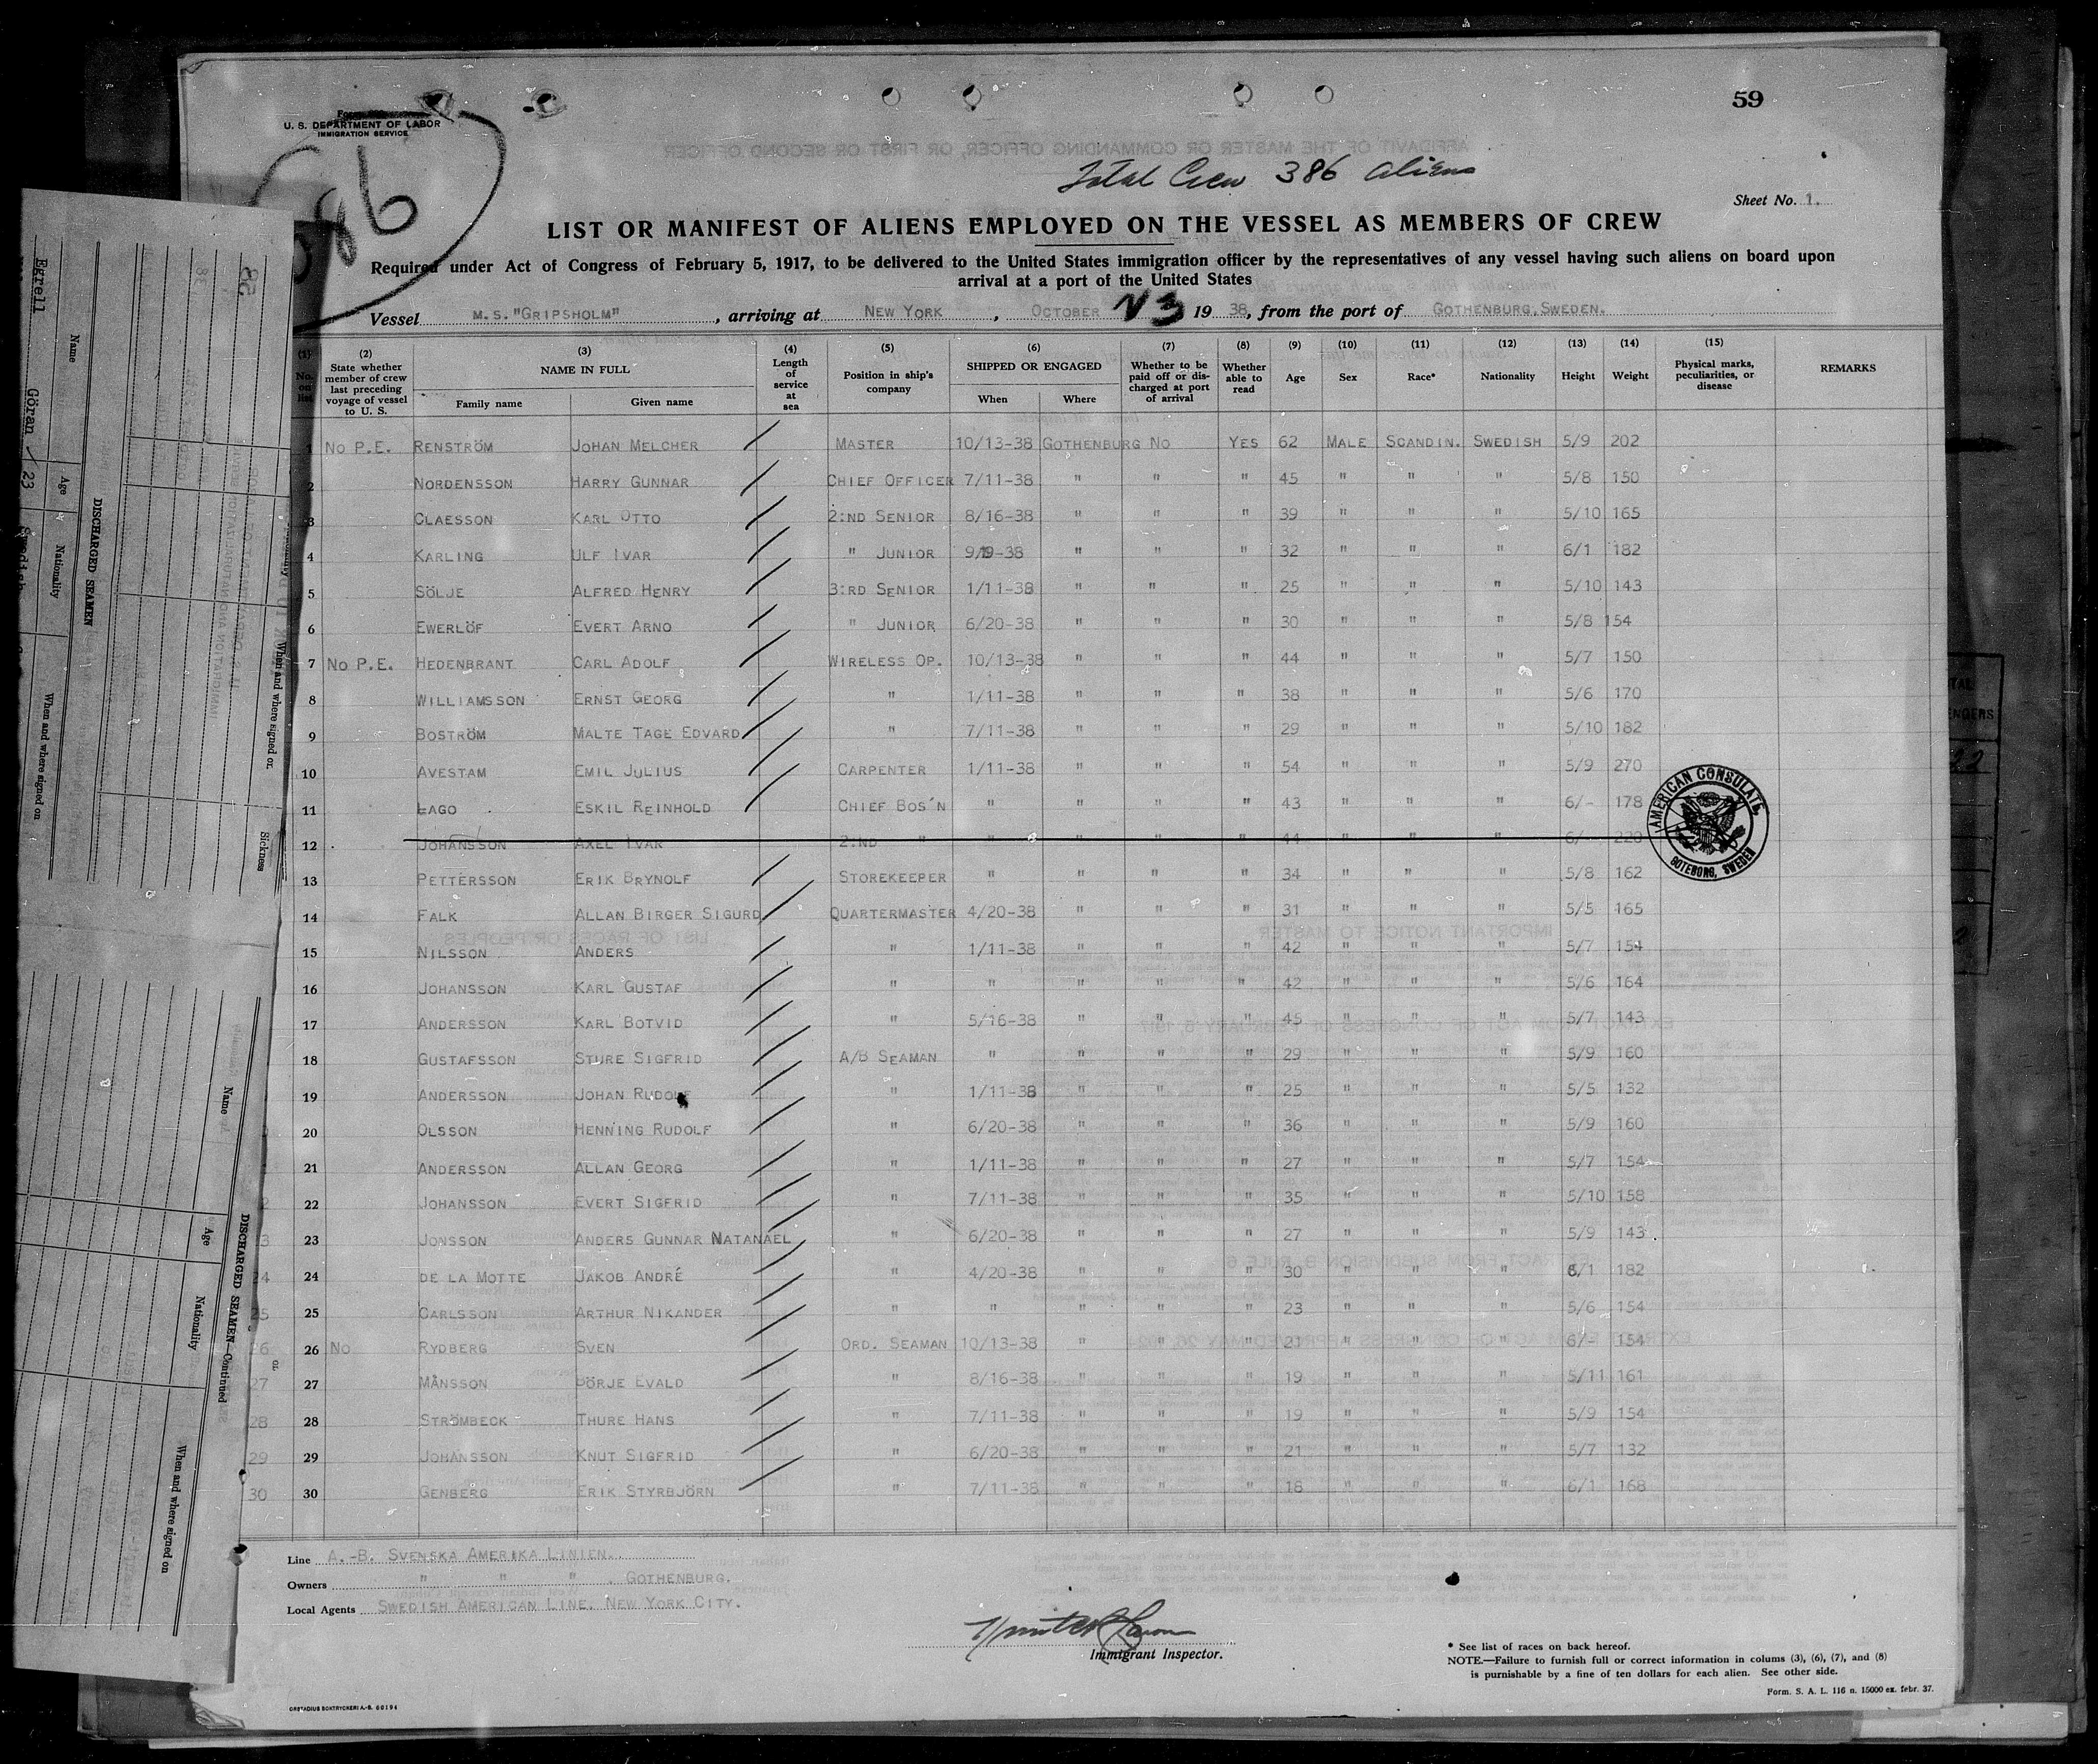 59
U. S. DEPARTMENT OF LABOR
IMMIGRATION SERVICE
86
Total Crew 386 aliens
Sheet No. 1.
LIST OR MANIFEST OF ALIENS EMPLOYED ON THE VESSEL AS MEMBERS OF CREW
Required under Act of Congress of February 5, 1917, to be delivered to the United States immigration officer by the representatives of any vessel having such aliens on board upon
arrival at a port of the United States
Vessel M.S. "GRIPSHOLM", arriving at NEW YORK, OCTOBER 1938, from the port of GOTHENBURG, SWEDEN.
(1) No. on list (2) State whether member of crew last preceding voyage of vessel to U. S. (3) NAME IN FULL Family name Given name (4) Length of service at sea (5) Position in ship's company (6) SHIPPED OR ENGAGED When Where (7) Whether to be paid off or discharged at port of arrival (8) Whether able to read (9) Age (10) Sex (11) Race* (12) Nationality (13) Height (14) Weight (15) Physical marks, peculiarities, or disease REMARKS
1 NO P.E. RENSTRÖM JOHAN MELCHER MASTER 10/13-38 GOTHENBURG NO YES 62 MALE SCANDIN. SWEDISH 5/9 202
2 NORDENSSON HARRY GUNNAR CHIEF OFFICER 7/11-38 " " " 45 " " " 5/8 150
3 CLAESSON KARL OTTO 2:ND SENIOR 8/16-38 " " " 39 " " " 5/10 165
4 KARLING ULF IVAR " JUNIOR " " " 32 " " " 6/1 182
5 SÖLJE ALFRED HENRY 3:RD SENIOR 1/11-38 " " " 25 " " " 5/10 143
6 EWERLÖF EVERT ARNO " JUNIOR 6/20-38 " " " 30 " " " 5/8 154
7 NO P.E. HEDENBRANT CARL ADOLF WIRELESS OP. 10/13-38 " " " 44 " " " 5/7 150
8 WILLIAMSSON ERNST GEORG " 1/11-38 " " " 38 " " " 5/6 170
9 BOSTRÖM MALTE TAGE EDVARD " 7/11-38 " " " 29 " " " 5/10 182
10 AVESTAM EMIL JULIUS CARPENTER 1/11-38 " " " 54 " " " 5/9 270
11 LAGO ESKIL REINHOLD CHIEF BOS'N " " " " 43 " " " 6/- 178
12 JOHANSSON AXEL IVAR 2:ND " " " " " 44 " " " 6/- 220
13 PETTERSSON ERIK BRYNOLF STOREKEEPER " " " " 34 " " " 5/8 162
14 FALK ALLAN BIRGER SIGURD QUARTERMASTER 4/20-38 " " " 31 " " " 5/5 165
15 NILSSON ANDERS " 1/11-38 " " " 42 " " " 5/7 154
16 JOHANSSON KARL GUSTAF " " " " " 42 " " " 5/6 164
17 ANDERSSON KARL BOTVID " 5/16-38 " " " 45 " " " 5/7 143
18 GUSTAFSSON STURE SIGFRID A/B SEAMAN " " " " 29 " " " 5/9 160
19 ANDERSSON JOHAN RUDOLF " 1/11-38 " " " 25 " " " 5/5 132
20 OLSSON HENNING RUDOLF " 6/20-38 " " " 36 " " " 5/9 160
21 ANDERSSON ALLAN GEORG " 1/11-38 " " " 27 " " " 5/7 154
22 JOHANSSON EVERT SIGFRID " 7/11-38 " " " 35 " " " 5/10 158
23 JONSSON ANDERS GUNNAR NATANAEL " 6/20-38 " " " 27 " " " 5/9 143
24 DE LA MOTTE JAKOB ANDRÉ " 4/20-38 " " " 30 " " " 6/1 182
25 CARLSSON ARTHUR NIKANDER " " " " " 23 " " " 5/6 154
26 NO RYDBERG SVEN ORD. SEAMAN 10/13-38 " " " 21 " " " 6/- 154
27 MÅNSSON BÖRJE EVALD " 8/16-38 " " " 19 " " " 5/11 161
28 STRÖMBECK THURE HANS " 7/11-38 " " " 19 " " " 5/9 154
29 JOHANSSON KNUT SIGFRID " 6/20-38 " " " 21 " " " 5/7 132
30 GENBERG ERIK STYRBJÖRN " 7/11-38 " " " 18 " " " 6/1 168
AMERICAN CONSULATE,
GOTEBORG, SWEDEN
Line A.-B. SVENSKA AMERIKA LINIEN.
Owners " " " . GOTHENBURG.
Local Agents SWEDISH AMERICAN LINE. NEW YORK CITY.
Immigrant Inspector.
* See list of races on back hereof.
NOTE.—Failure to furnish full or correct information in colums (3), (6), (7), and (8)
is punishable by a fine of ten dollars for each alien. See other side.
Form. S. A. L. 116 n. 15000 ex. febr. 37.
DISCHARGED SEAMEN
Name Age Nationality When and where signed on
Egrell Göran 23
When and where signed or.
Sickness
DISCHARGED SEAMEN—Continued
Name Age Nationality When and where signed on